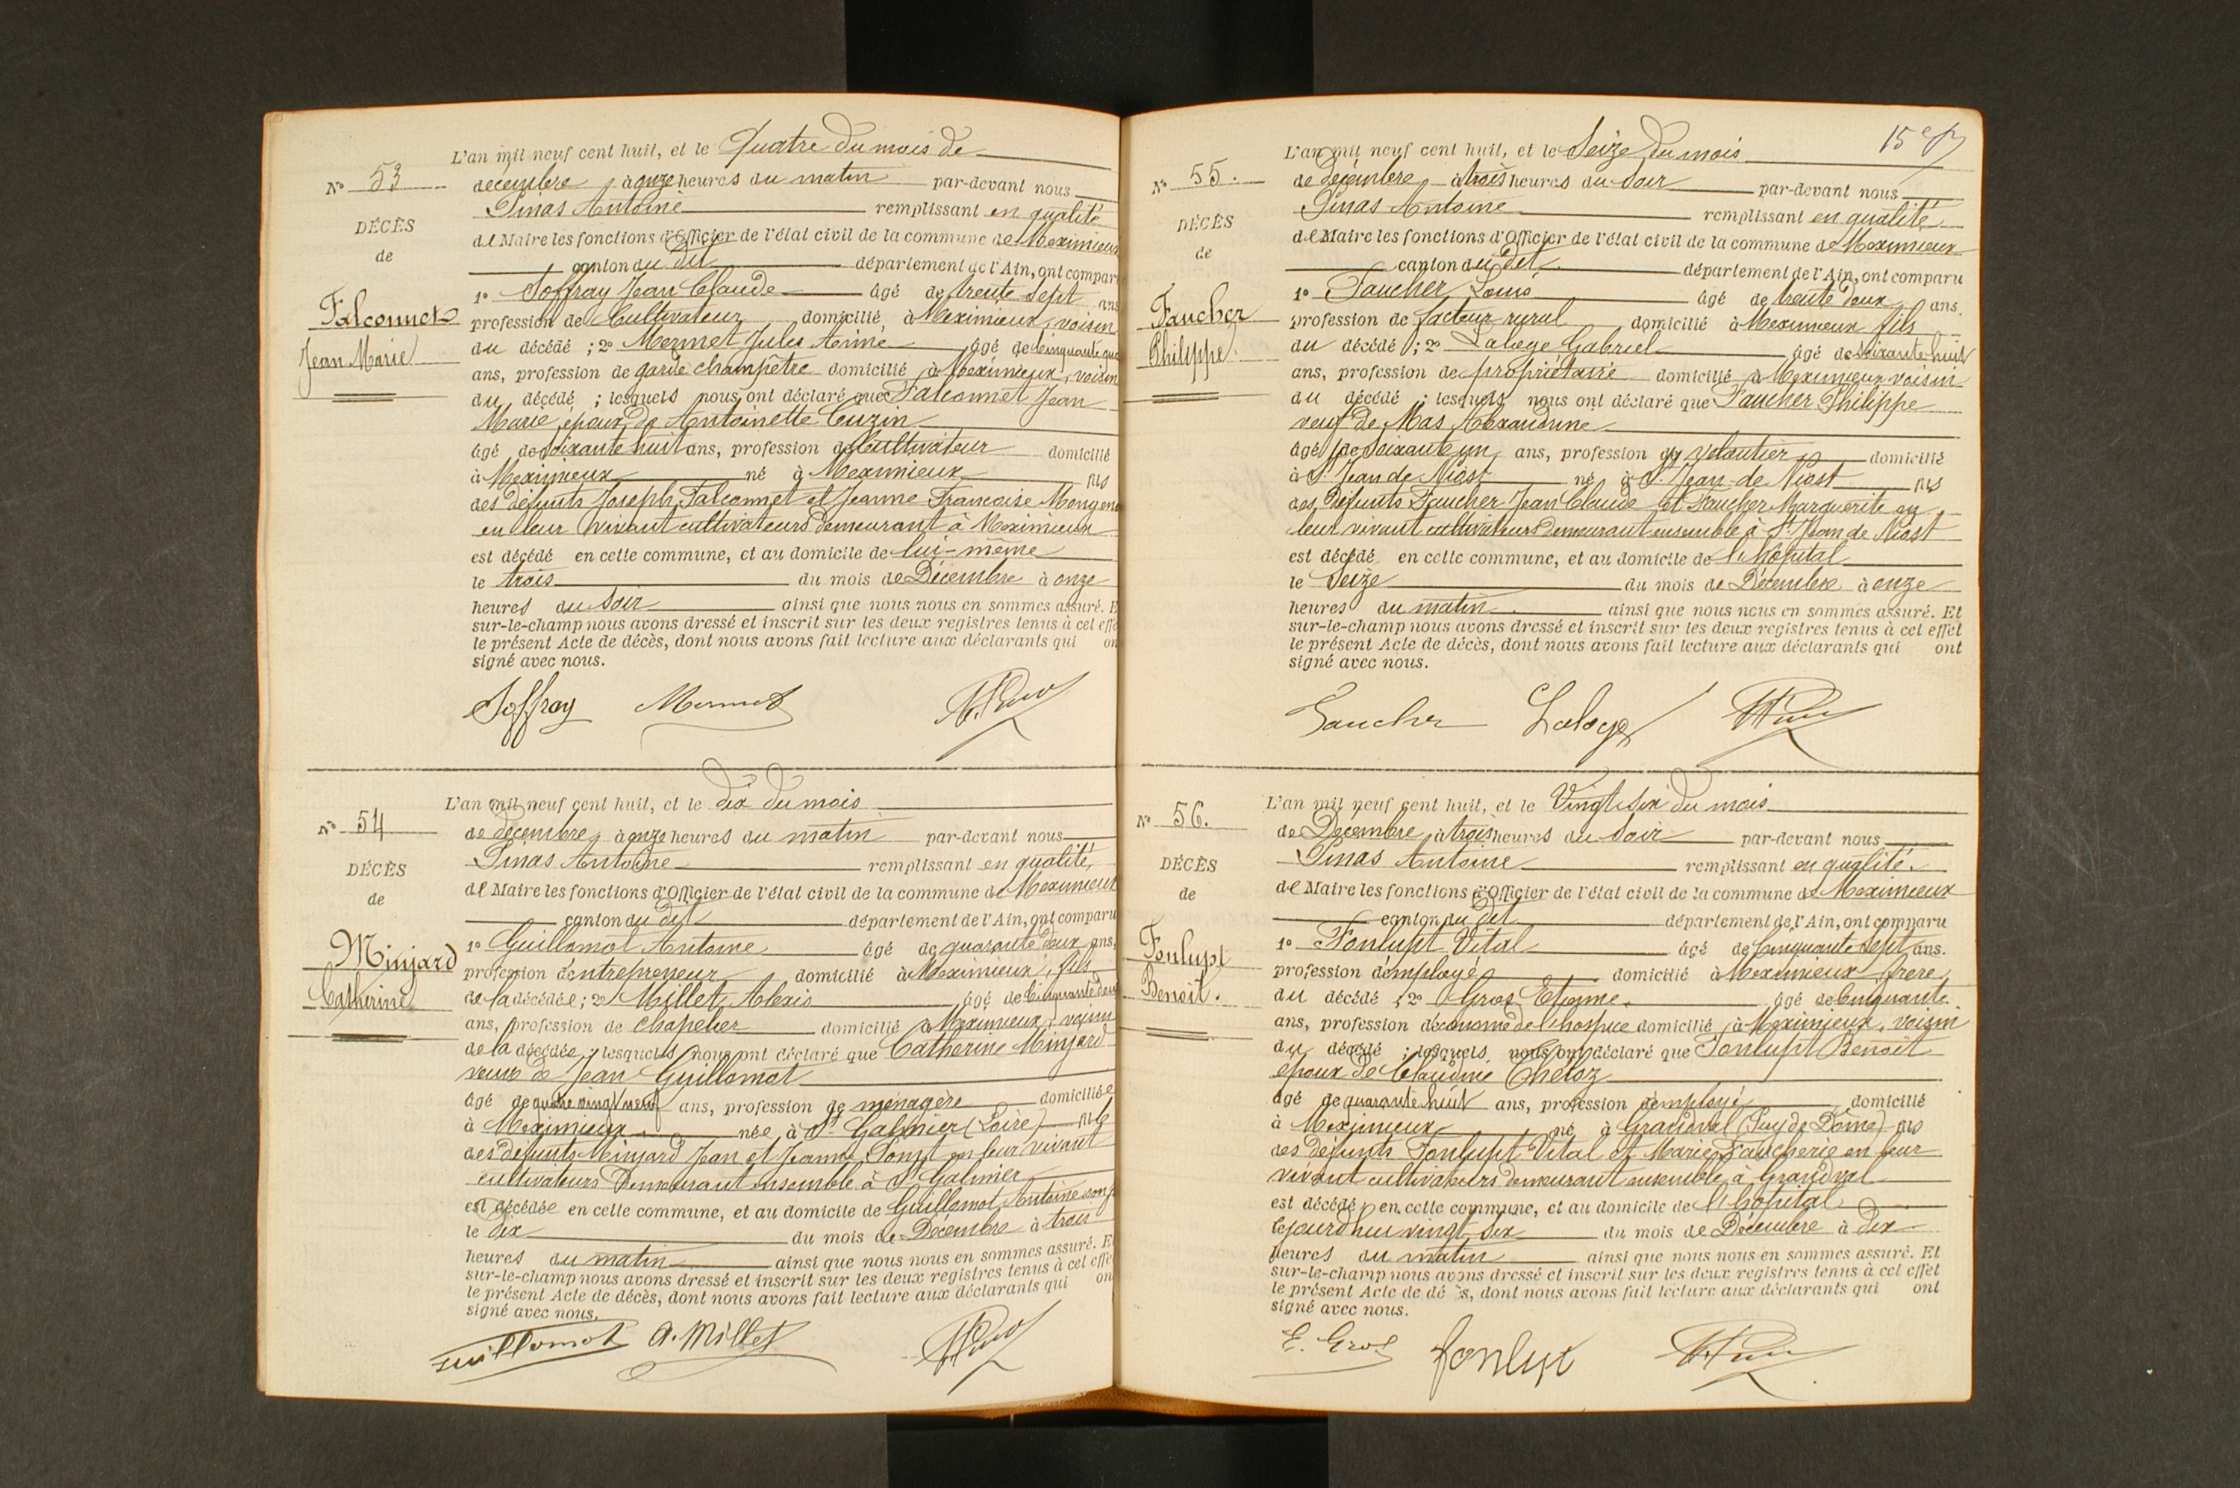 L'an mil neuf cent huit, et le Quatre du mois de
N° 53
décembre, à onze heures du matin par-devant nous
Pinas Antoine remplissant en qualité
DÉCÈS
de Maire les fonctions d'Officier de l'état civil de la commune de Meximieux
de
canton du dit département de l'Ain, ont comparu
1° Joffray Jean Claude âgé de trente sept ans
Falconnet
profession de Cultivateur domicilié à Meximieux, voisin
Jean Marie
du décédé ; 2° Mermet Jules Aimé âgé de Cinquante
ans, profession de garde champêtre domicilié à Meximieux, voisin
du décédé ; lesquels nous ont déclaré que Falconnet Jean
Marie époux de Antoinette Cuzin
âgé de soixante huit ans, profession de Cultivateur domicilié
à Meximieux né à Meximieux fils
des défunts Joseph Falconnet et Jeanne Françoise
en leur vivant cultivateurs demeurant à Meximieux
est décédé en cette commune, et au domicile de lui-même
le trois du mois de Décembre à onze
heures du soir ainsi que nous nous en sommes assuré. E
sur-le-champ nous avons dressé et inscrit sur les deux registres tenus à cet effe
le présent Acte de décès, dont nous avons fait lecture aux déclarants qui on
signé avec nous.
Joffray Mermet
L'an mil neuf cent huit, et le dix du mois
N° 54
de décembre, à onze heures du matin par-devant nous
Pinas Antoine remplissant en qualité
DÉCÈS
de Maire les fonctions d'Officier de l'état civil de la commune de Meximieux
de
canton du dit département de l'Ain, ont comparu
1° Guillomot Antoine âgé de quarante deux ans,
Minjard
profession d'entrepreneur domicilié à Meximieux, fils
Catherine
de la décédée ; 2° Millet Alexis âgé de Cinquante deux
ans, profession de chapelier domicilié à Meximieux, voisin
de la décédée ; lesquels nous ont déclaré que Catherine Minjard
veuve de Jean Guillomot
âgé de quatre vingt neuf ans, profession de ménagère domiciliée
à Meximieux née à St Galmier (Loire) fille
des défunts Minjard Jean et Jeanne en leur vivant
cultivateurs demeurant ensemble à St Galmier
est décédée en cette commune, et au domicile de Guillomot Antoine
le dix du mois de Décembre à trois
heures du matin ainsi que nous nous en sommes assuré. E
sur-le-champ nous avons dressé et inscrit sur les deux registres tenus à cet effe
le présent Acte de décès, dont nous avons fait lecture aux déclarants qui on
signé avec nous.
Guillomot A. Millet
15e
L'an mil neuf cent huit, et le Seize du mois
N° 55.
de décembre, à trois heures du soir par-devant nous
Pinas Antoine remplissant en qualité
DÉCÈS
de Maire les fonctions d'Officier de l'état civil de la commune de Meximieux
de
canton du dit département de l'Ain, ont comparu
1° Faucher Louis âgé de trente deux ans.
Faucher
profession de facteur rural domicilié à Meximieux fils
Philippe.
du décédé ; 2° Laloge Gabriel âgé de soixante huit
ans, profession de propriétaire domicilié à Meximieux voisin
du décédé ; lesquels nous ont déclaré que Faucher Philippe
veuf de Mas Alexandrine
âgé de soixante un ans, profession de veloutier domicilié
à St Jean de Niost né à St Jean de Niost fils
des défunts Faucher Jean Claude et Faucher Marguerite en
leur vivant cultivateurs demeurant ensemble à St Jean de Niost
est décédé en cette commune, et au domicile de l'hôpital
le Seize du mois de Décembre à onze
heures du matin. ainsi que nous nous en sommes assuré. Et
sur-le-champ nous avons dressé et inscrit sur les deux registres tenus à cet effet
le présent Acte de décès, dont nous avons fait lecture aux déclarants qui ont
signé avec nous.
Faucher Laloge
L'an mil neuf cent huit, et le Vingt six du mois
N° 56.
de Décembre à trois heures du soir par-devant nous
Pinas Antoine remplissant en qualité.
DÉCÈS
de Maire les fonctions d'Officier de l'état civil de la commune de Meximieux
de
canton du dit département de l'Ain, ont comparu
1° Fonlupt Vital âgé de Cinquante sept ans.
Fonlupt
profession d'employé domicilié à Meximieux frère
Benoît.
du décédé ; 2° Gros Etienne. âgé de Cinquante
ans, profession d'économe de l'hospice domicilié à Meximieux, voisin
du décédé ; lesquels nous ont déclaré que Fonlupt Benoît
époux de Claudine Cheloz
âgé de quarante huit ans, profession d'employé domicilié
à Meximieux né à Grandval (Puy de Dôme) fils
des défunts Fonlupt Vital et Marie Faucherie en leur
vivant cultivateurs demeurant ensemble à Grandval
est décédé en cette commune, et au domicile de l'hôpital
cejourd'hui vingt six du mois de Décembre à dix
heures du matin ainsi que nous nous en sommes assuré. Et
sur-le-champ nous avons dressé et inscrit sur les deux registres tenus à cet effet
le présent Acte de décès, dont nous avons fait lecture aux déclarants qui ont
signé avec nous.
E. Gros fonlupt